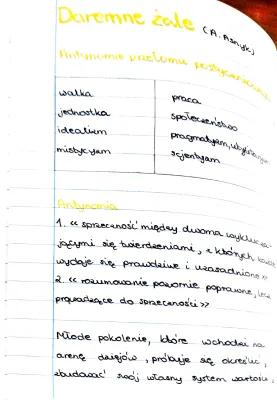 Daremne żale (A. Asnyk)
Antynomie przełomu pozytywistycznego
walka praca
jednostka społeczeństwo
idealizm pragmatyzm,
mistycyzm scjentyzm
Antynomia
1. « sprzeczność między dwoma wyklucza-
jącymi się twierdzeniami, z których każde
wydaje się prawdziwe i uzasadnione »
2. « rozumowanie pozornie poprawne, lecz
prowadzące do sprzeczności »
Młode pokolenie, które wchodzi na
arenę dziejów, próbuje się określić,
zbudować swój własny system wartości.